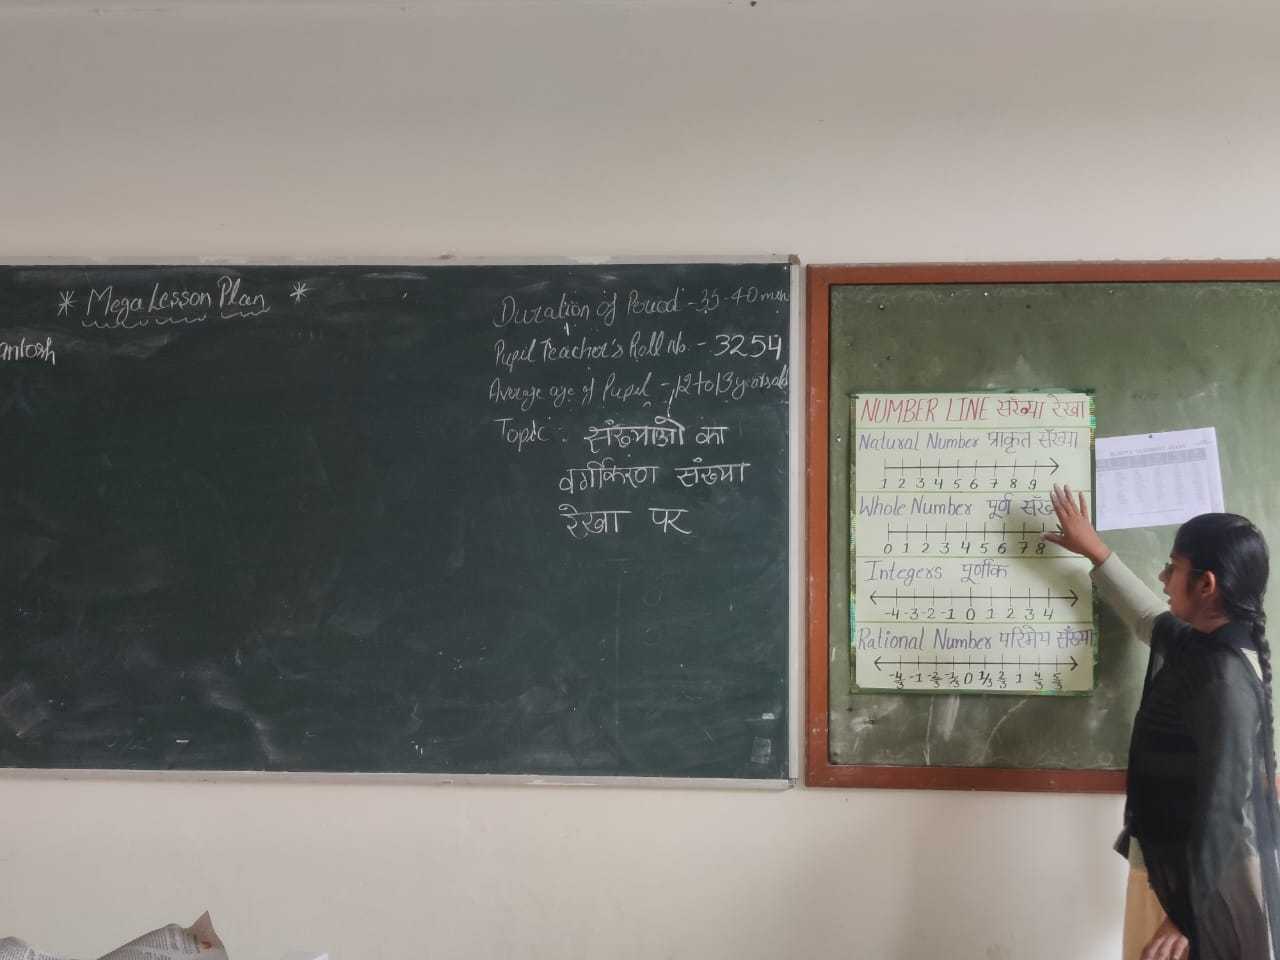 * Mega Lesson Plan *
antosh
Duration of Period - 35-40 min
Pupil Teacher's Roll No. - 3254
Average age of Pupil - 12 to 13 years old
Topic :- संख्याओ का
वर्गीकरण संख्या
रेखा पर
NUMBER LINE संख्या रेखा
Natural Number प्राकृत संख्या
1 2 3 4 5 6 7 8 9
Whole Number पूर्ण
0 1 2 3 4 5 6 7 8
Integers पूर्णांक
-4 -3 -2 -1 0 1 2 3 4
Rational Number परिमेय संख्या
-4/3 -1 -2/3 -1/3 0 1/3 2/3 1 4/3 5/3